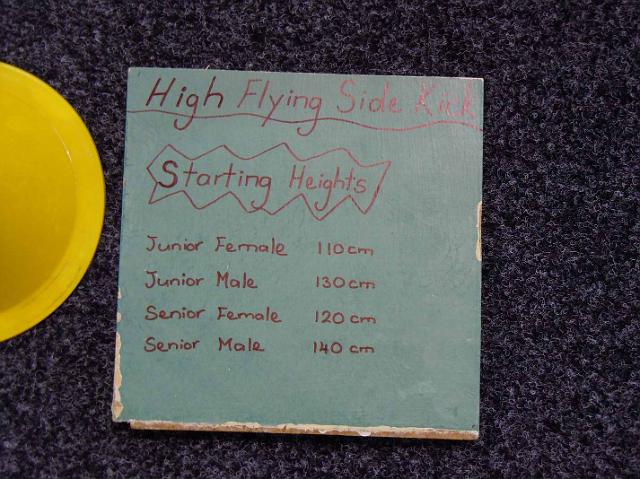 High Flying Side Kick
Starting Heights
Junior Female 110cm
Junior Male 130cm
Senior Female 120cm
Senior Male 140cm